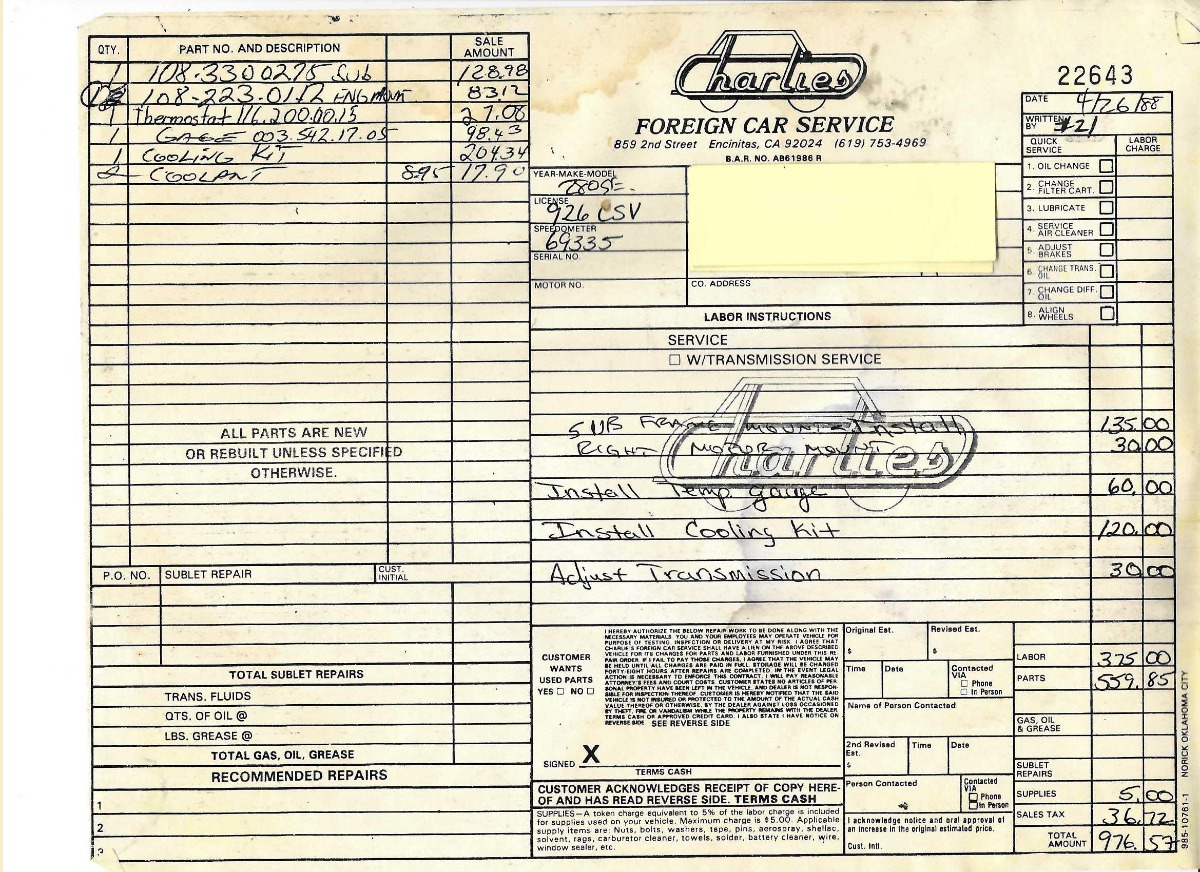 QTY. PART NO. AND DESCRIPTION SALE AMOUNT
1 108-3300275 Sub 128.98
108-223-0112 ENG MOUNT 83.12
1 Thermostat 116.200.00.15 27.08
1 GAGE 003.542.17.05 98.43
1 COOLING KIT 204.34
2 COOLANT 8.95 17.90
ALL PARTS ARE NEW
OR REBUILT UNLESS SPECIFIED
OTHERWISE.
P.O. NO. SUBLET REPAIR CUST. INITIAL
TOTAL SUBLET REPAIRS
TRANS. FLUIDS
QTS. OF OIL @
LBS. GREASE @
TOTAL GAS, OIL, GREASE
RECOMMENDED REPAIRS
1
2
3
Charlies
FOREIGN CAR SERVICE
859 2nd Street Encinitas, CA 92024 (619) 753-4969
B.A.R. NO. AB61986 R
22643
DATE 4/26/88
WRITTEN BY #21
QUICK SERVICE LABOR CHARGE
1. OIL CHANGE
2. CHANGE FILTER CART.
3. LUBRICATE
4. SERVICE AIR CLEANER
5. ADJUST BRAKES
6. CHANGE TRANS. OIL
7. CHANGE DIFF. OIL
8. ALIGN WHEELS
YEAR-MAKE-MODEL
280SE
LICENSE
926 CSV
SPEEDOMETER
69335
SERIAL NO.
MOTOR NO.
CO. ADDRESS
LABOR INSTRUCTIONS
SERVICE
W/TRANSMISSION SERVICE
Charlies
SUB FRAME MOUNT-Install 135.00
RIGHT MOTOR MOUNT 30.00
Install Temp gauge 60.00
Install Cooling Kit 120.00
Adjust Transmission 30.00
CUSTOMER WANTS USED PARTS
YES NO
I HEREBY AUTHORIZE THE BELOW REPAIR WORK TO BE DONE ALONG WITH THE
NECESSARY MATERIALS. YOU AND YOUR EMPLOYEES MAY OPERATE VEHICLE FOR
PURPOSE OF TESTING, INSPECTION OR DELIVERY AT MY RISK. I AGREE THAT
CHARLIE'S FOREIGN CAR SERVICE SHALL HAVE A LIEN ON THE ABOVE DESCRIBED
VEHICLE FOR ITS CHARGES FOR PARTS AND LABOR FURNISHED UNDER THIS RE-
PAIR ORDER. IF I FAIL TO PAY THOSE CHARGES, I AGREE THAT THE VEHICLE MAY
BE HELD UNTIL ALL CHARGES ARE PAID IN FULL. STORAGE WILL BE CHARGED
FORTY-EIGHT HOURS AFTER REPAIRS ARE COMPLETED. IN THE EVENT LEGAL
ACTION IS NECESSARY TO ENFORCE THIS CONTRACT, I WILL PAY REASONABLE
ATTORNEY'S FEES AND COURT COSTS. CUSTOMER STATES NO ARTICLES OF PER-
SONAL PROPERTY HAVE BEEN LEFT IN THE VEHICLE, AND DEALER IS NOT RESPON-
SIBLE FOR INSPECTION THEREOF. CUSTOMER IS HEREBY NOTIFIED THAT THE SAID
VEHICLE IS NOT INSURED OR PROTECTED TO THE AMOUNT OF THE ACTUAL CASH
VALUE THEREOF OR OTHERWISE, BY THE DEALER AGAINST LOSS OCCASIONED
BY THEFT, FIRE OR VANDALISM WHILE THE PROPERTY REMAINS WITH THE DEALER.
TERMS CASH OR APPROVED CREDIT CARD. I ALSO STATE I HAVE NOTICE ON
REVERSE SIDE SEE REVERSE SIDE
SIGNED X
TERMS CASH
CUSTOMER ACKNOWLEDGES RECEIPT OF COPY HERE-
OF AND HAS READ REVERSE SIDE. TERMS CASH
SUPPLIES—A token charge equivalent to 5% of the labor charge is included
for supplies used on your vehicle. Maximum charge is $5.00. Applicable
supply items are: Nuts, bolts, washers, tape, pins, aerospray, shellac,
solvent, rags, carburetor cleaner, towels, solder, battery cleaner, wire,
window sealer, etc.
Original Est. Revised Est.
$ $
Time Date Contacted VIA
Phone
In Person
Name of Person Contacted
2nd Revised Est. Time Date
$
Person Contacted Contacted VIA
Phone
In Person
I acknowledge notice and oral approval of
an increase in the original estimated price.
Cust. Intl.
LABOR 375.00
PARTS 559.85
GAS, OIL & GREASE
SUBLET REPAIRS
SUPPLIES 5.00
SALES TAX 36.72
TOTAL AMOUNT 976.57
985-10761-1 NORICK OKLAHOMA CITY